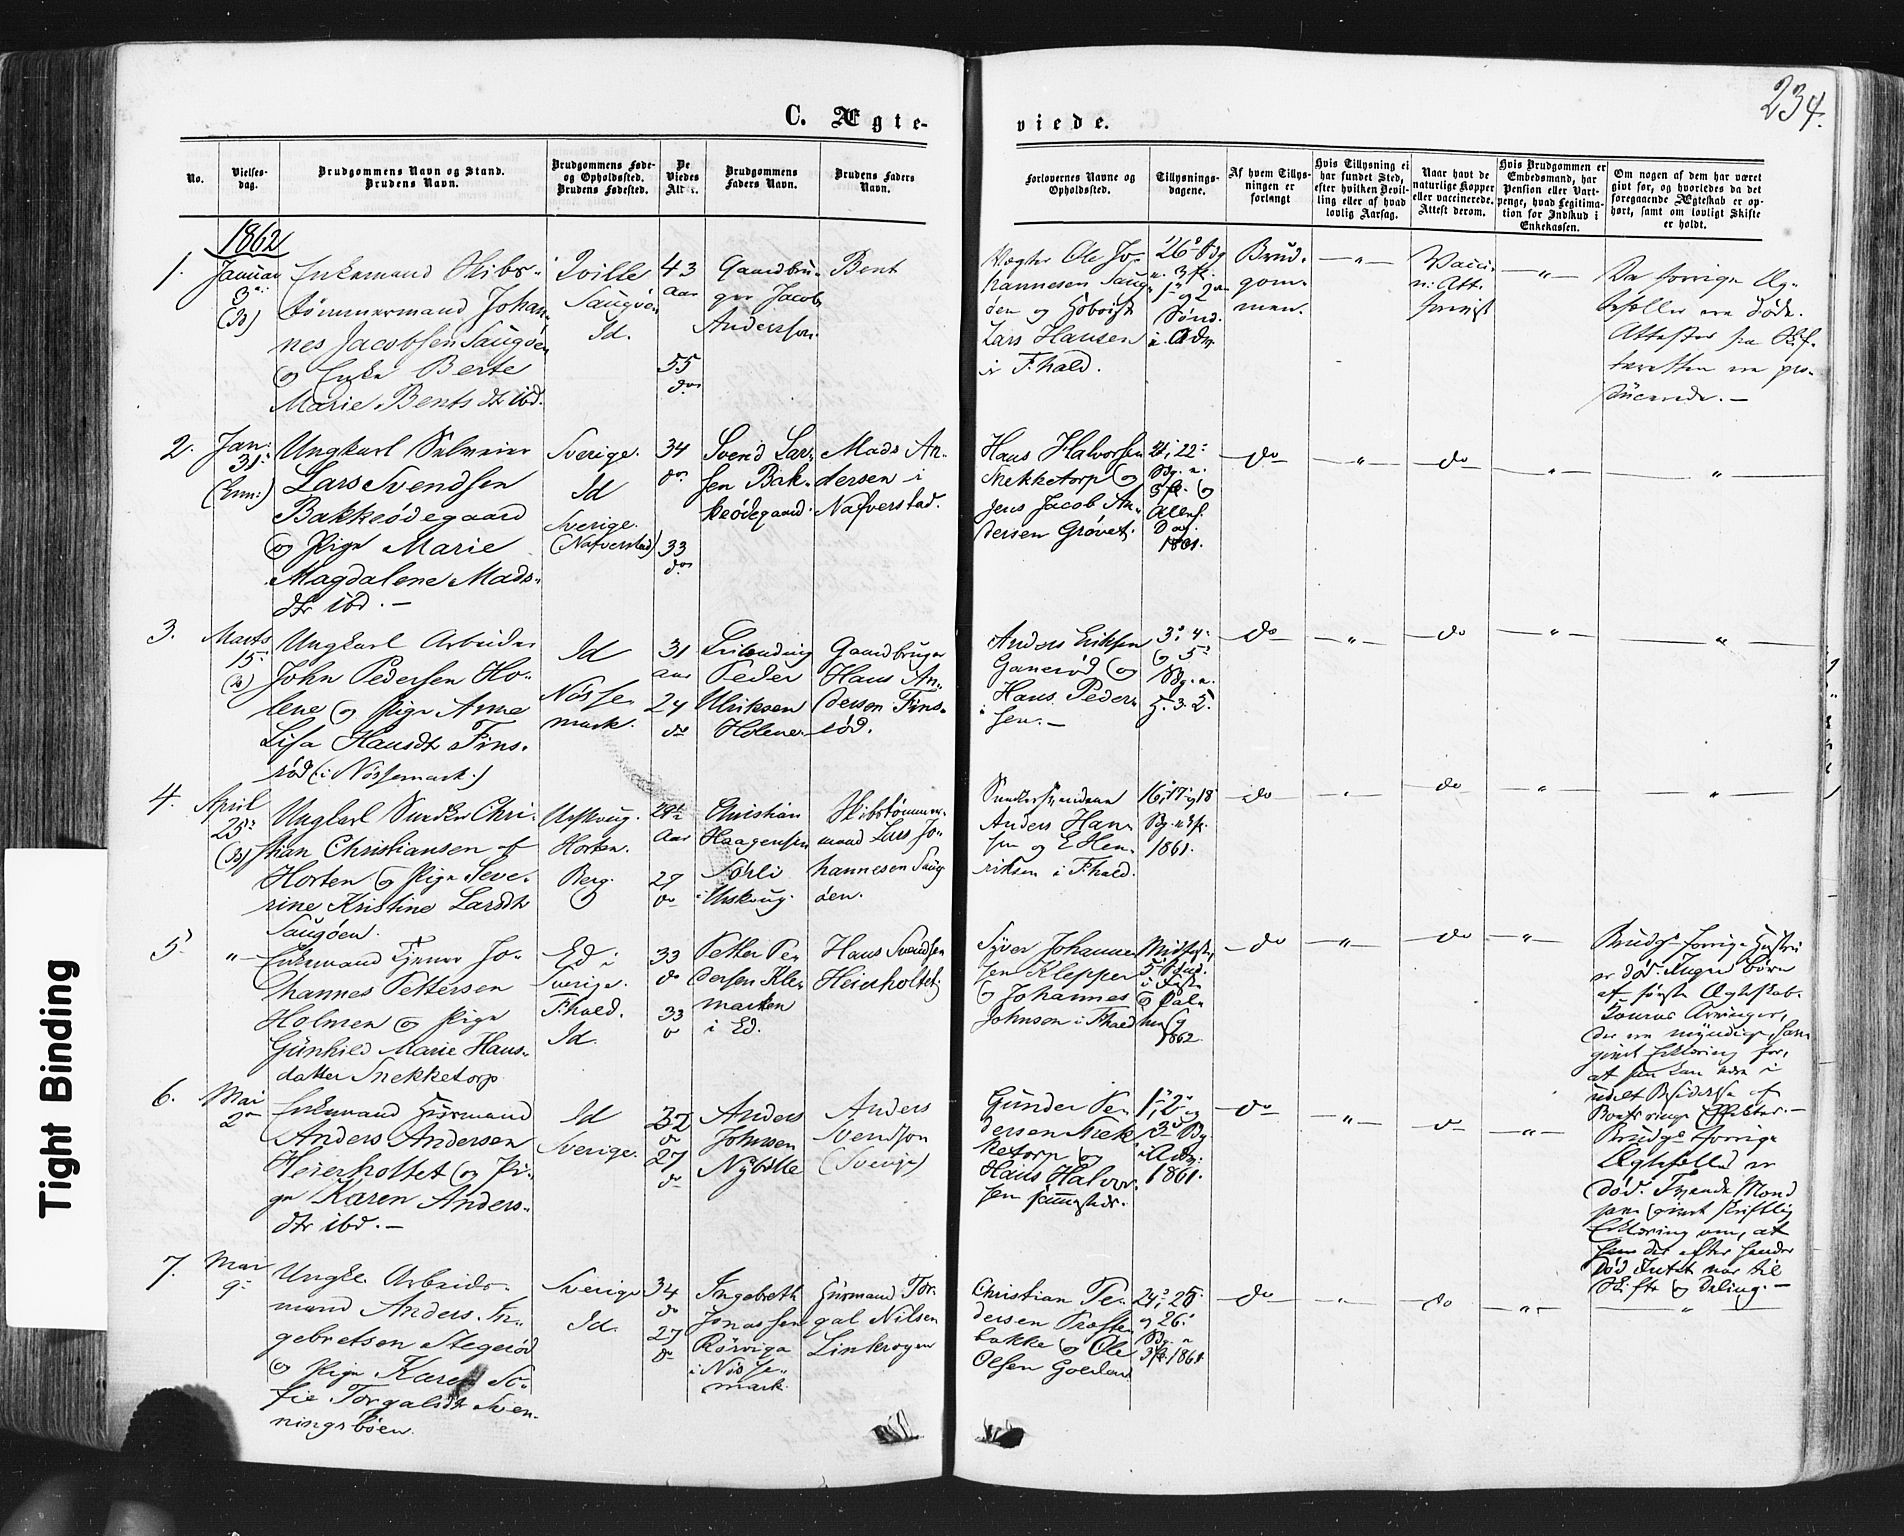 234.
C. Ægte-
viede.
No.
Vielses-
dag.
Brudgommens Navn og Stand.
Brudens Navn.
Brudgommens Føde-
og Opholdssted.
Brudens Fødested.
De
Viedes
Alder.
Brudgommens
Faders Navn.
Brudens Faders
Navn.
Forlovernes Navne og
Opholdssted.
Tillysnings-
dagene.
Af hvem Tillys-
ningen er
forlangt
Hvis Tillysning ei
har fundet Sted,
efter hvilken Bevil-
ling eller af hvad
lovlig Aarsag.
Naar havt de
naturlige Kopper
eller vaccinerede.
Attest derom.
Hvis Brudgommen er
Embedsmand, har
Pension eller Vart-
penge, hvad Legitima-
tion for Indskud i
Enkekassen.
Om nogen af dem har været
gift før, og hvorledes da det
foregaaende Ægteskab er op-
hørt, samt om lovligt Skifte
er holdt.
1862
1.
Januar
3
(B)
Enkemand Skibs-
tømmermand Johan-
nes Jacobsen Saugøen
og Enke Berte
Marie Bents dtr ibd.
Qville
Saugøen
Id.
43
aar
55
do
Gaardbru-
ger Jacob
Anderssen
Bent
Vægter Ole Jo-
hannesen Saug-
øen og
Lars Hansen
i Fhald.
26 Bg
1 og 2
Sønd.
i Adv.
Brud-
gom-
men.
"
Vacci-
n: Att.
"
De forrige Æg-
tefeller ere døde.
Attester fra Skif-
teretten ere pro-
ducerede. —
2.
Jan:
31
Ungkarl Selveier
Lars Svendsen
Bakkeødegaard
og Pige Marie
Magdalene Mads-
dtr ibd. —
Sverige.
Id
Sverige.
(Nafverstad)
34
do
33
do
Svend Lar-
sen Bak-
keødegaard.
Mads An-
dersen i
Nafverstad.
Hans Halvorsen
Snekketorp og
Jens Jacob An-
dersen Grøvet.
21, 22
Bg. n.
1861.
do
"
do
"
"
3.
Marts
15
(B)
Ungkarl Arbeider
John Pedersen Ho-
lene og Pige Anne
Lisa Hansdtr Fins-
rød (i Nössemark.)
Id
Nösse
mark.
31
aar
24
do
Peder
Ulriksen
Holene
Gaardbruger
Hans An-
dersson Fins-
rød.
Anders Eriksen
Ganerød og
Hans Peder-
sen. —
3, 4
og 5
Bg. n.
do
"
do
"
"
4.
April
25
(B)
Ungkarl Snedker Chri-
stian Christiansen af
Horten og Pige Seve-
rine Kristine Larsdtr
Saugøen.
Urskoug.
Horten.
Berg.
Aar
29
do
Christian
Haagensen
Sørli
i Urskoug.
Skibstømmer-
mand Lars Jo-
hannesen Saug-
øen.
Anders Han-
sen og E Hen-
riksen i Fhald.
16, 17 og 18
1861.
do
"
do
"
"
5.
"
Enkemand Jo-
hannes Pettersen
Holmen og Pige
Günhild Marie Hans-
datter Snekketorp
Ed i
Sverige.
Fhald.
Id.
33
do
33
Petter Pe-
dersen Kle-
marken
i Ed.
Hans Svendsen
Heierholtet
Syver Johanne-
sen Klepper
og Johannes
Johnson i Fhald
1862.
do
"
do
"
Brudg. forrige Hustru
er død. Ingen Børn
af første Ægteskab.
der ere myndige, have
givet Erklæring for,
at han kan være i
Besiddelse af
Boets ringe Effekter. —
6.
Mai
2
Enkemand Huusmand
Anders Andersen
Heierholtet og Pi-
ge Karen Anders-
dtr ibd. —
Id
Sverige.
32
do
27
do
Anders
Johnsen
Anders
Svendson
(Sverige)
Gunder Pe-
dersen Snek-
ketorp og
Hans Halvor-
sen sammesteds.
1, 2 og
3 Bg
1861.
do
"
do
"
Brudgs. forrige
Ægtefelle er
død.
have givet skriftlig
Erklæring om, at
der efter hendes
Død Intet var til
Skifte og Deling. —
7.
Mai
9
Ungk. Arbeids-
mand Anders In-
gebretsen Stegerød
og Pige Karen So-
fie Torgalsdtr Sven-
ningsbøen.
Sverige
Id.
34
do
27
do
Ingebreth
Jonassen
Rörviga
i Nösse-
mark.
Huusmand Tor-
gal Nilsen
Linkrogen
Christian Pe-
dersen Præste-
bakke og Ole
Olsen
24, 25
og 26
Bg. n
1861
do
"
do
"
"
Tight Binding